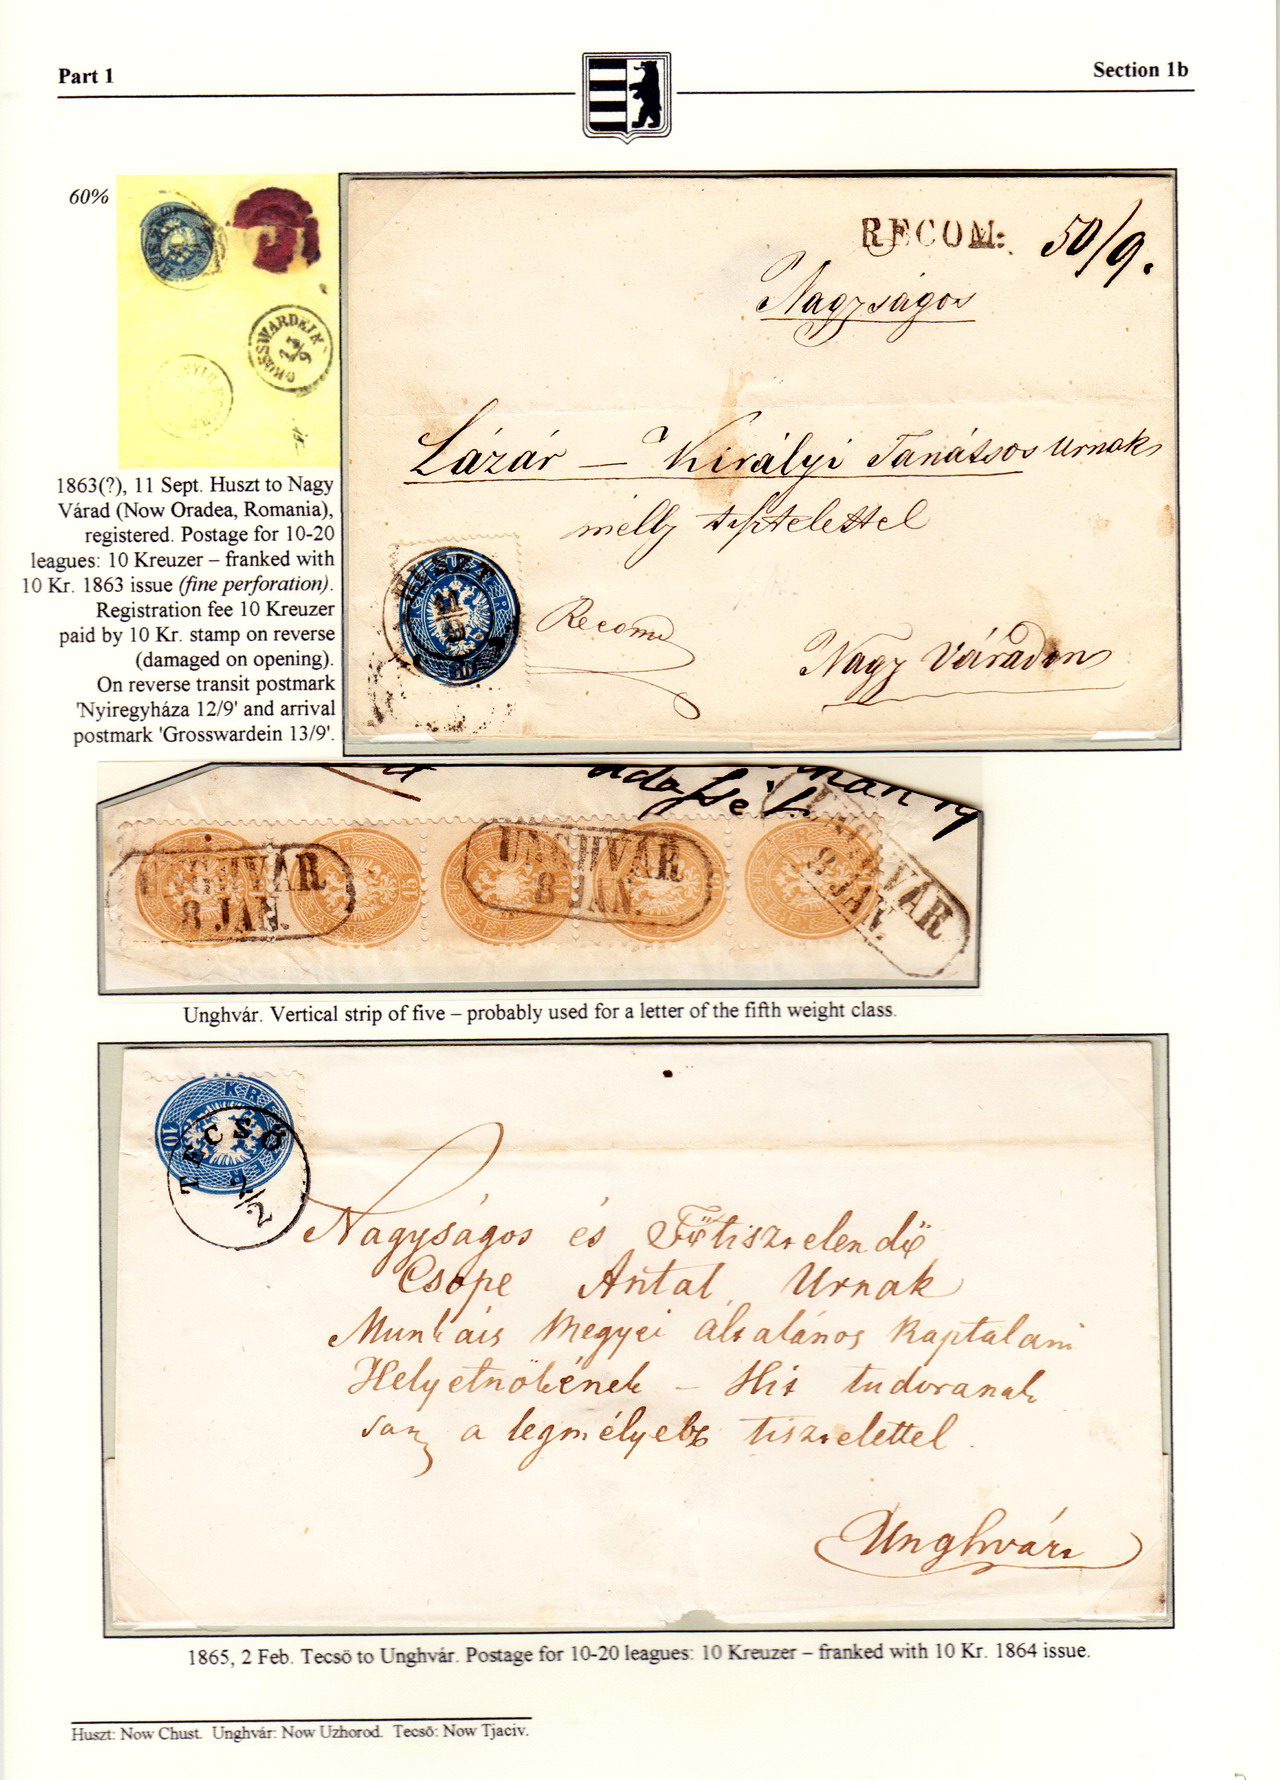 Part 1
Section 1b
60%
GROSSWARDEIN
13/9
1863(?), 11 Sept. Huszt to Nagy
Várad (Now Oradea, Romania),
registered. Postage for 10-20
leagues: 10 Kreuzer – franked with
10 Kr. 1863 issue (fine perforation).
Registration fee 10 Kreuzer
paid by 10 Kr. stamp on reverse
(damaged on opening).
On reverse transit postmark
'Nyiregyháza 12/9' and arrival
postmark 'Grosswardein 13/9'.
RECOM: 50/9.
Nagyságos
Lázár – Királyi Tanátsos Urnak
mélly tisztelettel
HUSZT
11/9
Recom
Nagy Váradon
UNGHVÁR
8 JAN.
UNGHVÁR
8 JAN.
UNGHVÁR
8 JAN.
15
Unghvár. Vertical strip of five – probably used for a letter of the fifth weight class.
10
TECSÖ
2/2
Nagyságos és Főtisztelendő
Csope Antal Urnak
Munkács Megyei általános Kaptalani
Helyetnökének – Hit tudoranak
a legmélyebb tisztelettel
Unghvár
1865, 2 Feb. Tecsö to Unghvár. Postage for 10-20 leagues: 10 Kreuzer – franked with 10 Kr. 1864 issue.
Huszt: Now Chust. Unghvár: Now Uzhorod. Tecsö: Now Tjaciv.